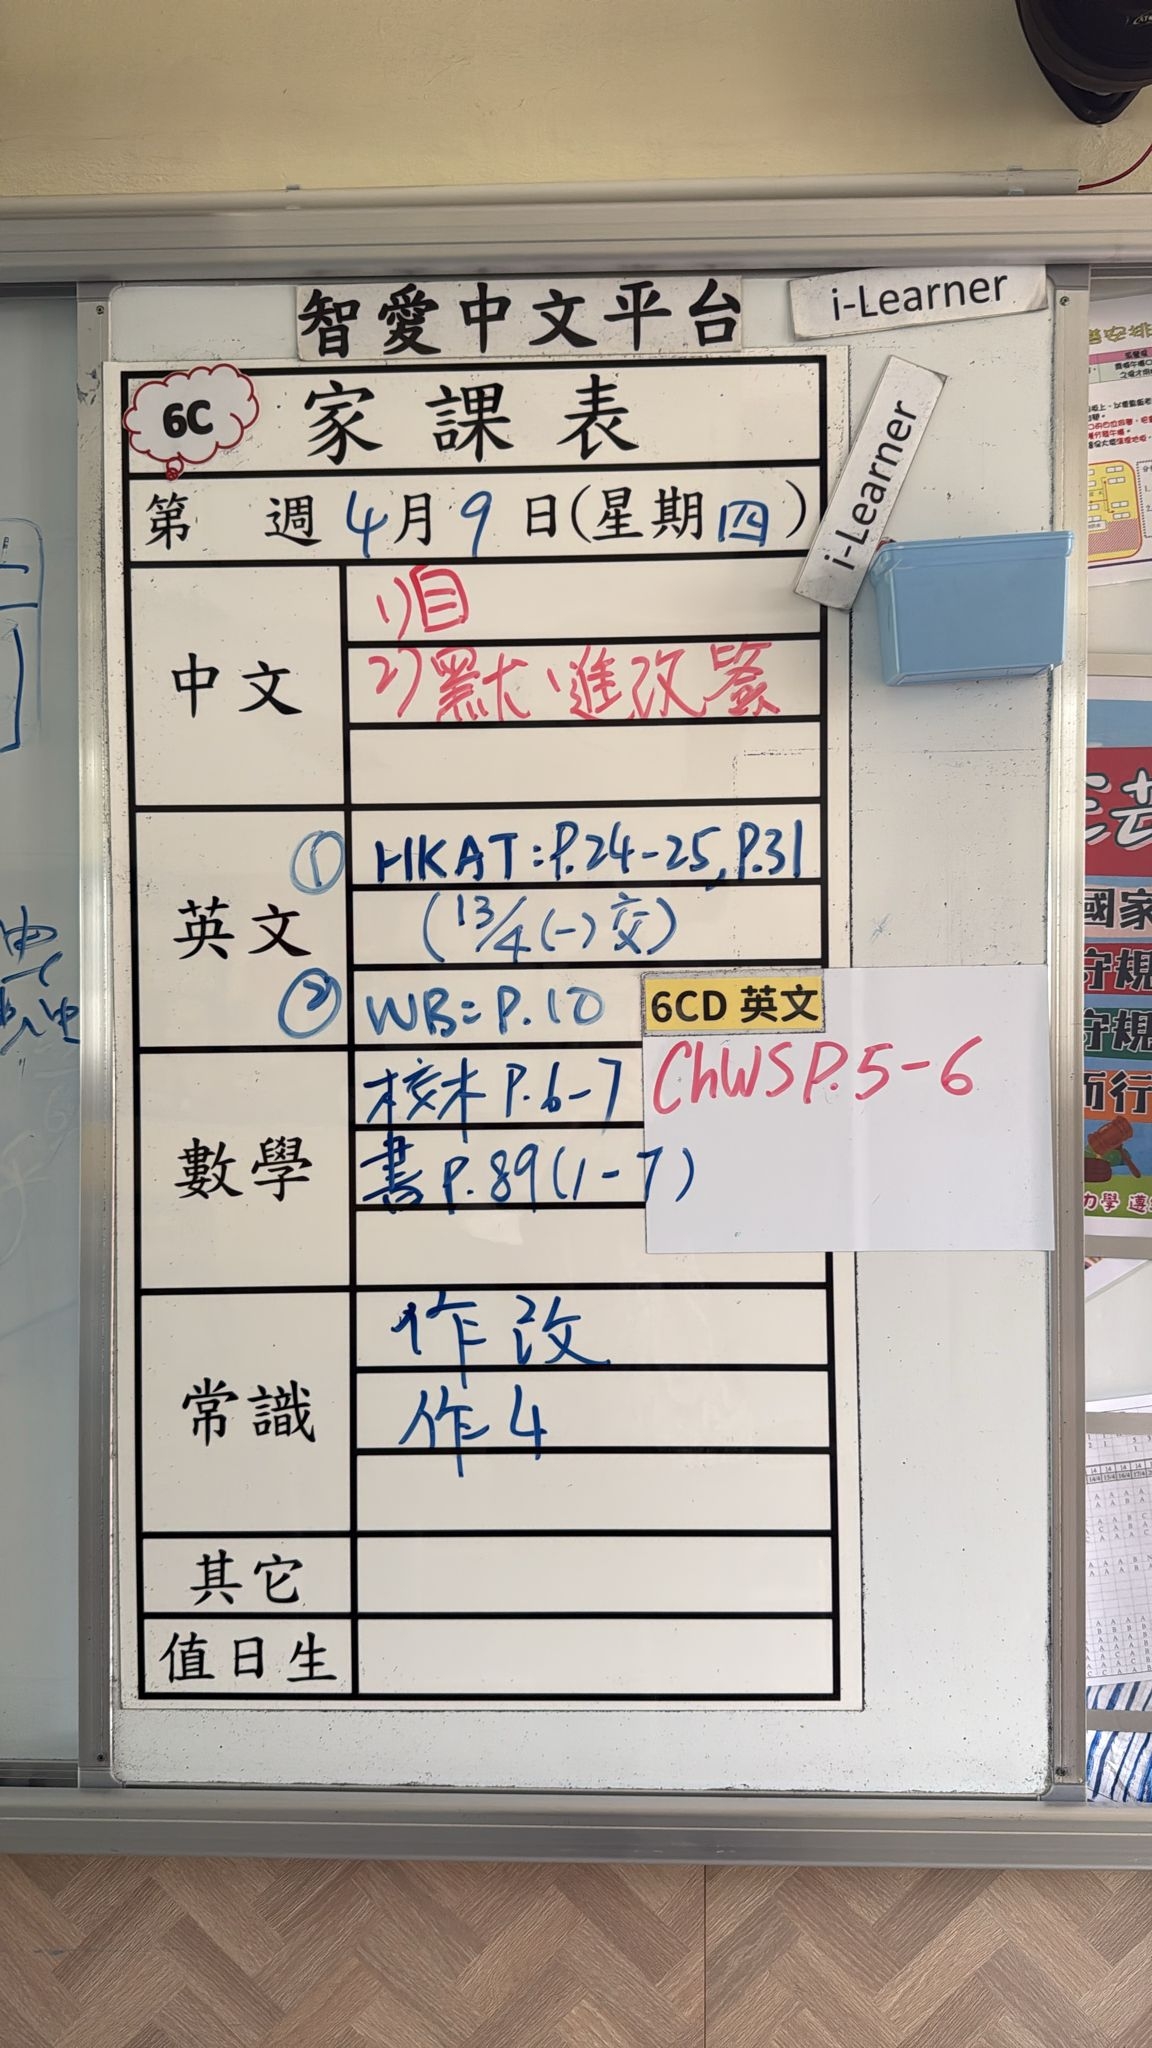 智愛中文平台
i-Learner
i-Learner
6C
家課表
第 週 4月9日(星期四)
中文
1)自
2)默、進改簽
英文
① HKAT: P.24-25, P.31
(13/4 (一) 交)
② WB: P.10
6CD 英文
ChWS P.5-6
數學
校本 P.6-7
書 P.89 (1-7)
常識
作改
作4
其它
值日生
國家
守規
守規
而行
力學 遵